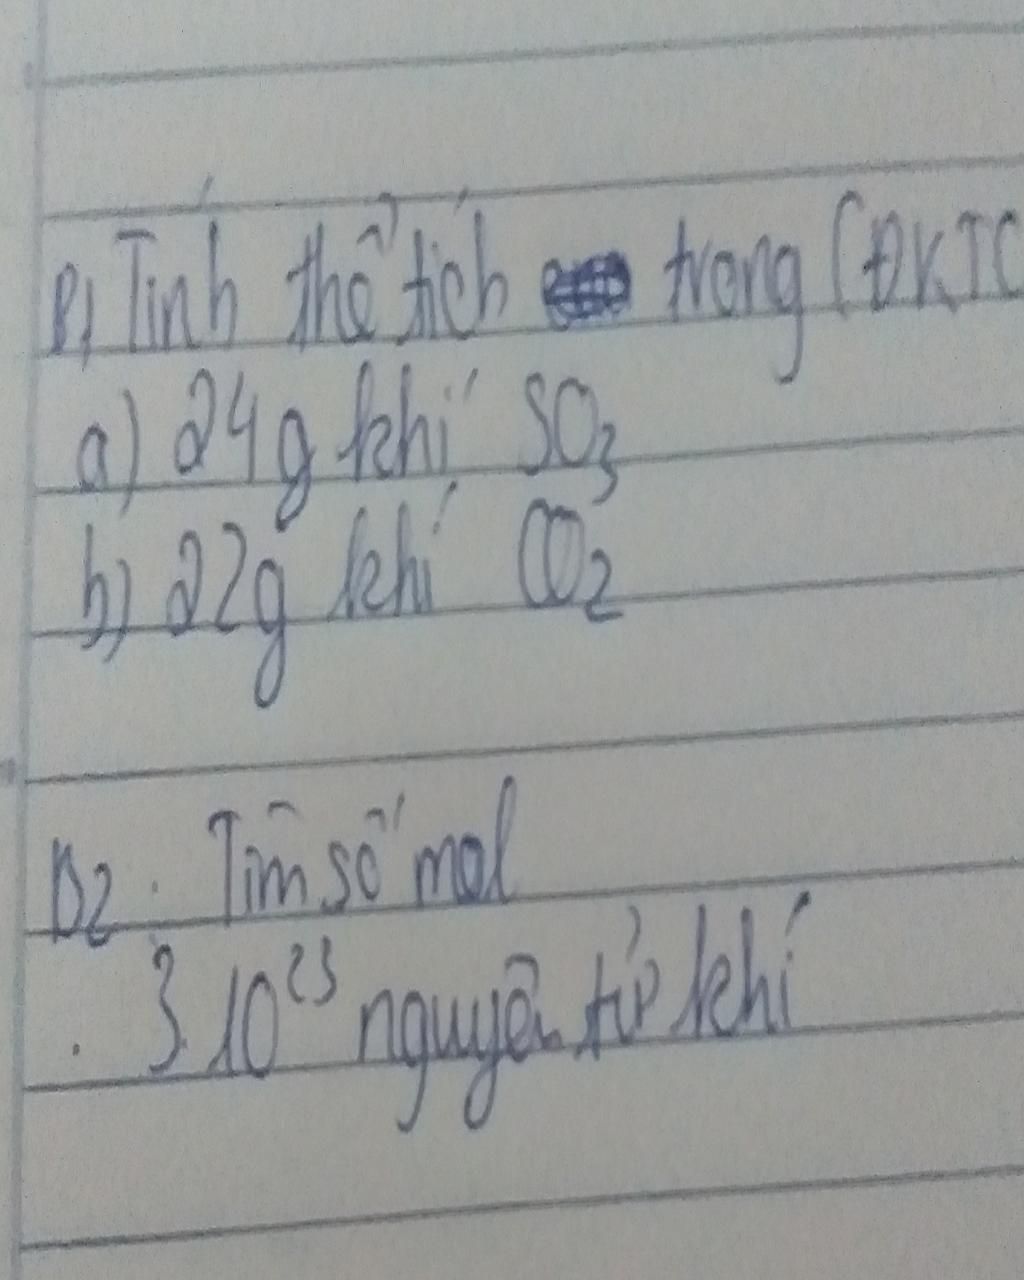 B1 Tính thể tích trong (ĐKTC
a) 24g khí SO₃
b) 22g khí CO₂
B2. Tìm số mol
. 3.10²³ nguyên tử khí